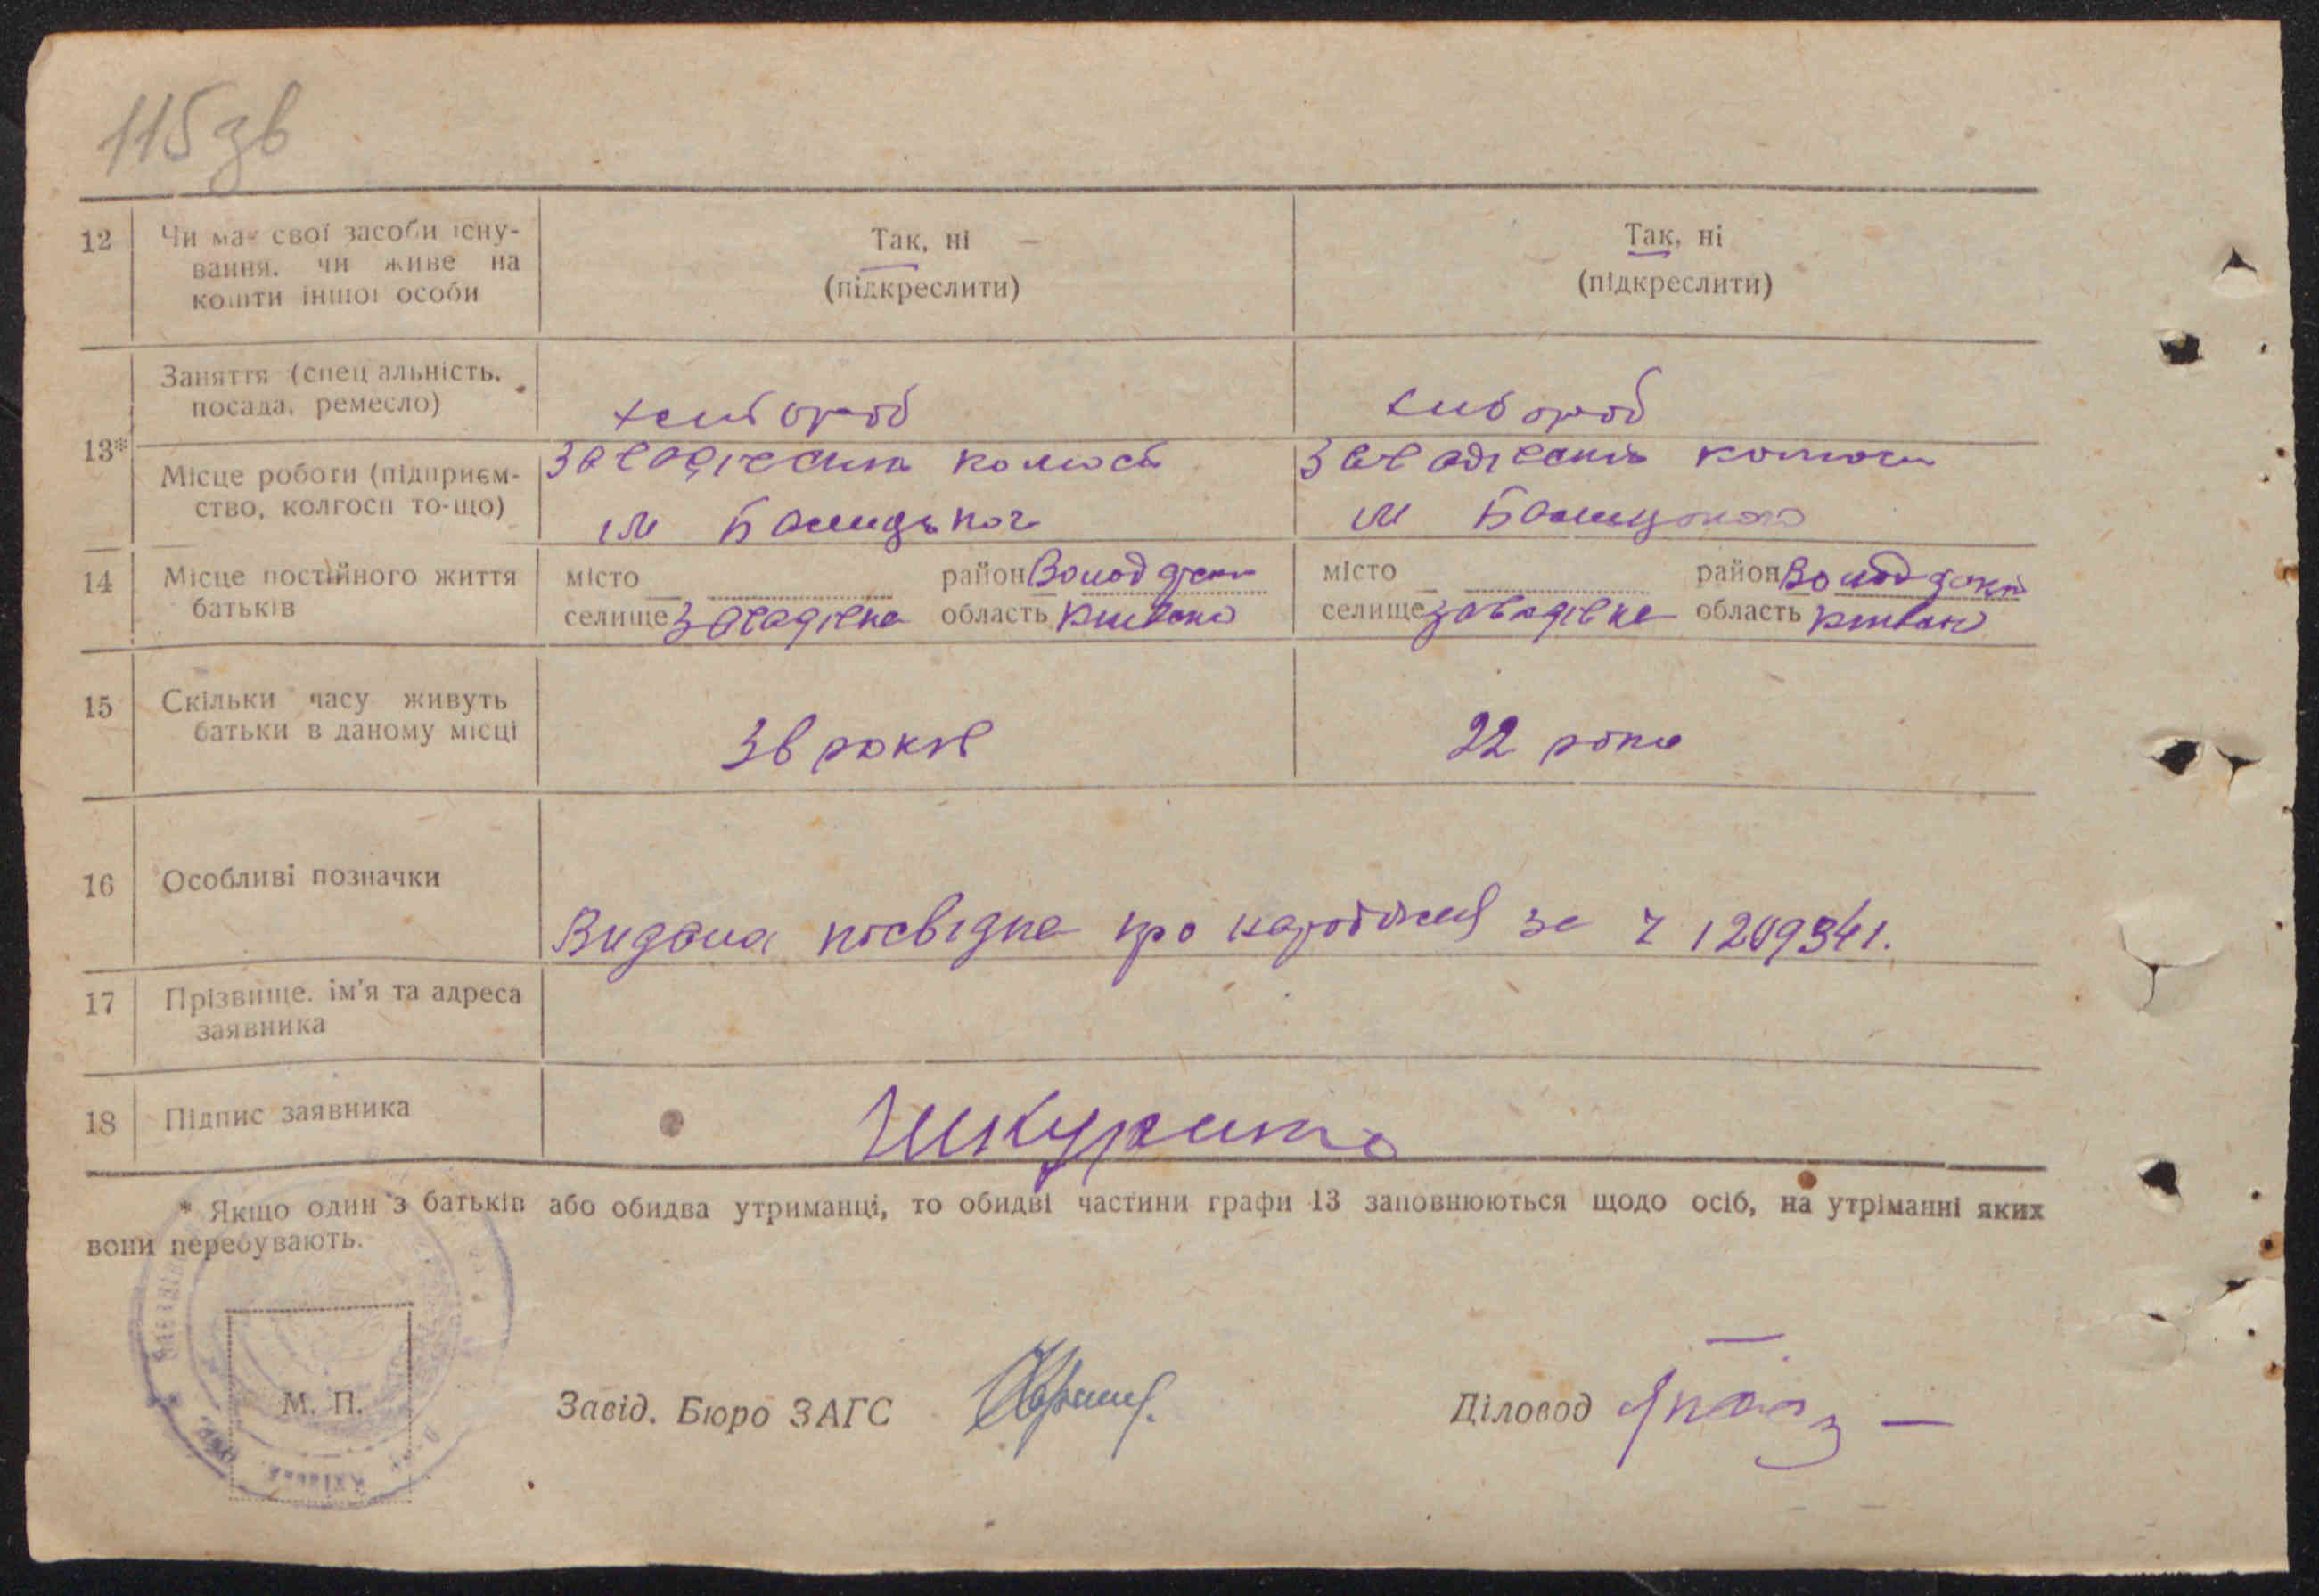 115 зв
12 Чи має свої засоби існу- Так, ні — Так, ні
вання, чи живе на (підкреслити) (підкреслити)
кошти іншої особи
Заняття (спеціальність, хлібороб хлібороб
посада, ремесло)
13* Місце роботи (підприєм- Завадівський колгосп Завадівський колгосп
ство, колгосп то-що) ім ім
14 Місце постійного життя місто район Володарськ місто район Володарськ
батьків селище Завадівка область Київська селище Завадівка область Київська
15 Скільки часу живуть
батьки в даному місці 36 років 22 роки
16 Особливі позначки
Видана посвідка про народження за ч 1209341.
17 Прізвище, ім'я та адреса
заявника
18 Підпис заявника Шкуренко
* Якщо один з батьків або обидва утриманці, то обидві частини графи 13 заповнюються щодо осіб, на утріманні яких
вони перебувають.
М. П.
Завід. Бюро ЗАГС Діловод